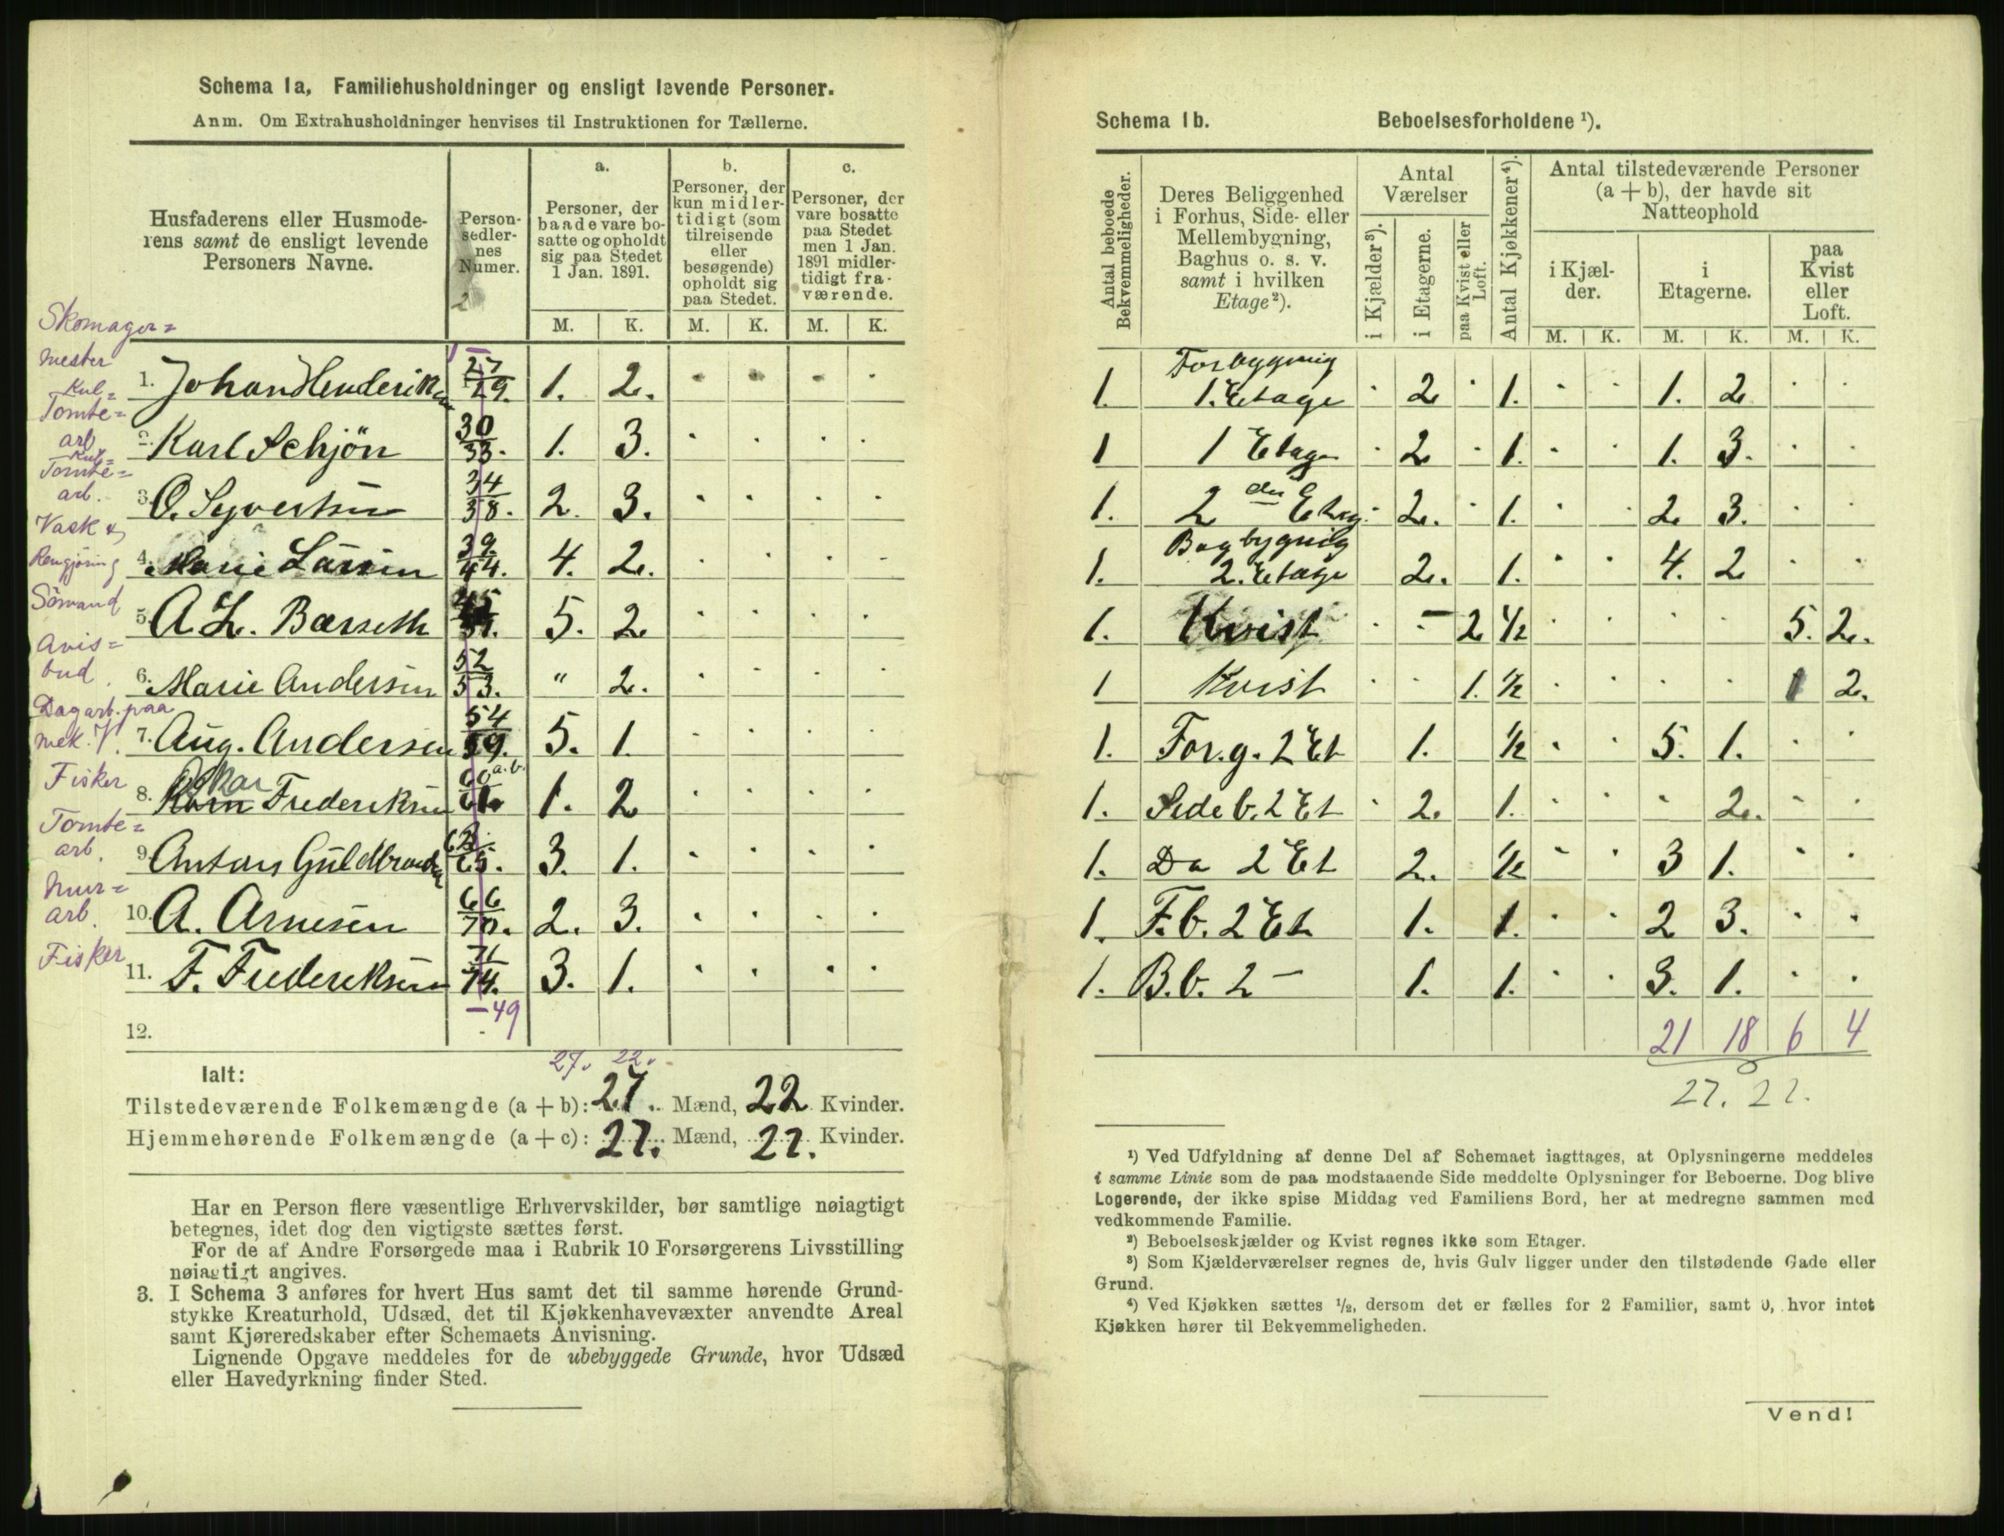 Schema 1a, Familiehusholdninger og ensligt levende Personer.
Anm. Om Extrahusholdninger henvises til Instruktionen for Tællerne.
Husfaderens eller Husmoderens samt de ensligt levende Personers Navne.
Personsedlernes Numer.
a. Personer, der baade vare bosatte og opholdt sig paa Stedet 1 Jan. 1891.
b. Personer, der kun midlertidigt (som tilreisende eller besøgende) opholdt sig paa Stedet.
c. Personer, der vare bosatte paa Stedet men 1 Jan. 1891 midlertidigt fraværende.
M. K. M. K. M. K.
Skomager=
mester
1. Johan Henderiksen 27/29. 1. 2.
Kul=
Tomte=
arb
2. Karl Schjön 30/33. 1. 3.
Kul=
Tomte=
arb.
3. O. Syvertsen 34/38. 2. 3.
Vask &
Rengjøring
4. Marie Larsen 39/44. 4. 2.
Sömand
5. A. L. Barseth 45/51. 5. 2
Avis=
bud.
6. Marie Andersen 52/53. " 2.
Dagarb. paa
mek. V.
7. Aug. Andersen 54/59. 5. 1.
Fisker
8. Oskar Frederiksen 60 a.b./61. 1. 2
Tomte=
arb.
9. Antons Guldbrandsen 62/65. 3. 1.
Mur=
arb.
10. A. Arnesen 66/70. 2. 3.
Fisker
11. F. Frederiksen 71/74. 3. 1.
12. —49
27. 22.
Ialt:
Tilstedeværende Folkemængde (a + b): 27. Mænd, 22 Kvinder.
Hjemmehørende Folkemængde (a + c): 27. Mænd, 22. Kvinder.
Har en Person flere væsentlige Erhvervskilder, bør samtlige nøiagtigt
betegnes, idet dog den vigtigste sættes først.
For de af Andre Forsørgede maa i Rubrik 10 Forsørgerens Livsstilling
nøiagtigt angives.
3. I Schema 3 anføres for hvert Hus samt det til samme hørende Grund-
stykke Kreaturhold, Udsæd, det til Kjøkkenhavevæxter anvendte Areal
samt Kjøreredskaber efter Schemaets Anvisning.
Lignende Opgave meddeles for de ubebyggede Grunde, hvor Udsæd
eller Havedyrkning finder Sted.
Schema 1b. Beboelsesforholdene ¹).
Antal beboede Bekvemmeligheder.
Deres Beliggenhed i Forhus, Side- eller Mellembygning, Baghus o. s. v. samt i hvilken Etage²).
Antal Værelser
i Kjælder³).
i Etagerne.
paa Kvist eller Loft.
Antal Kjøkkener⁴).
Antal tilstedeværende Personer (a + b), der havde sit Natteophold
i Kjælder.
i Etagerne.
paa Kvist eller Loft.
M. K. M. K. M. K.
1. Forbygnig 1. Etage 2 1. 1. 2
1 1 Etage 2 1. 1. 3.
1. 2 den Etag. 2. 1. 2. 3.
1. Bagbygnig 2. Etage 2. 1. 4. 2
1. Kvist – 2 ½ 5. 2.
1 Kvist 1. ½ 2.
1. For.g. 2 Et 1. ½ 5. 1.
1. Side b. 2 Et 2. 1. 2.
1. Do 2 Et 2. ½ 3 1.
1. F.b. 2 Et 1. 1. 2 3.
1. B.b. 2 – 1. 1. 3. 1.
21 18 6 4
27. 22.
¹) Ved Udfyldning af denne Del af Schemaet iagttages, at Oplysningerne meddeles
i samme Linie som de paa modstaaende Side meddelte Oplysninger for Beboerne. Dog blive
Logerende, der ikke spise Middag ved Familiens Bord, her at medregne sammen med
vedkommende Familie.
²) Beboelseskjælder og Kvist regnes ikke som Etager.
³) Som Kjælderværelser regnes de, hvis Gulv ligger under den tilstødende Gade eller
Grund.
⁴) Ved Kjøkken sættes ½, dersom det er fælles for 2 Familier, samt 0, hvor intet
Kjøkken hører til Bekvemmeligheden.
Vend!